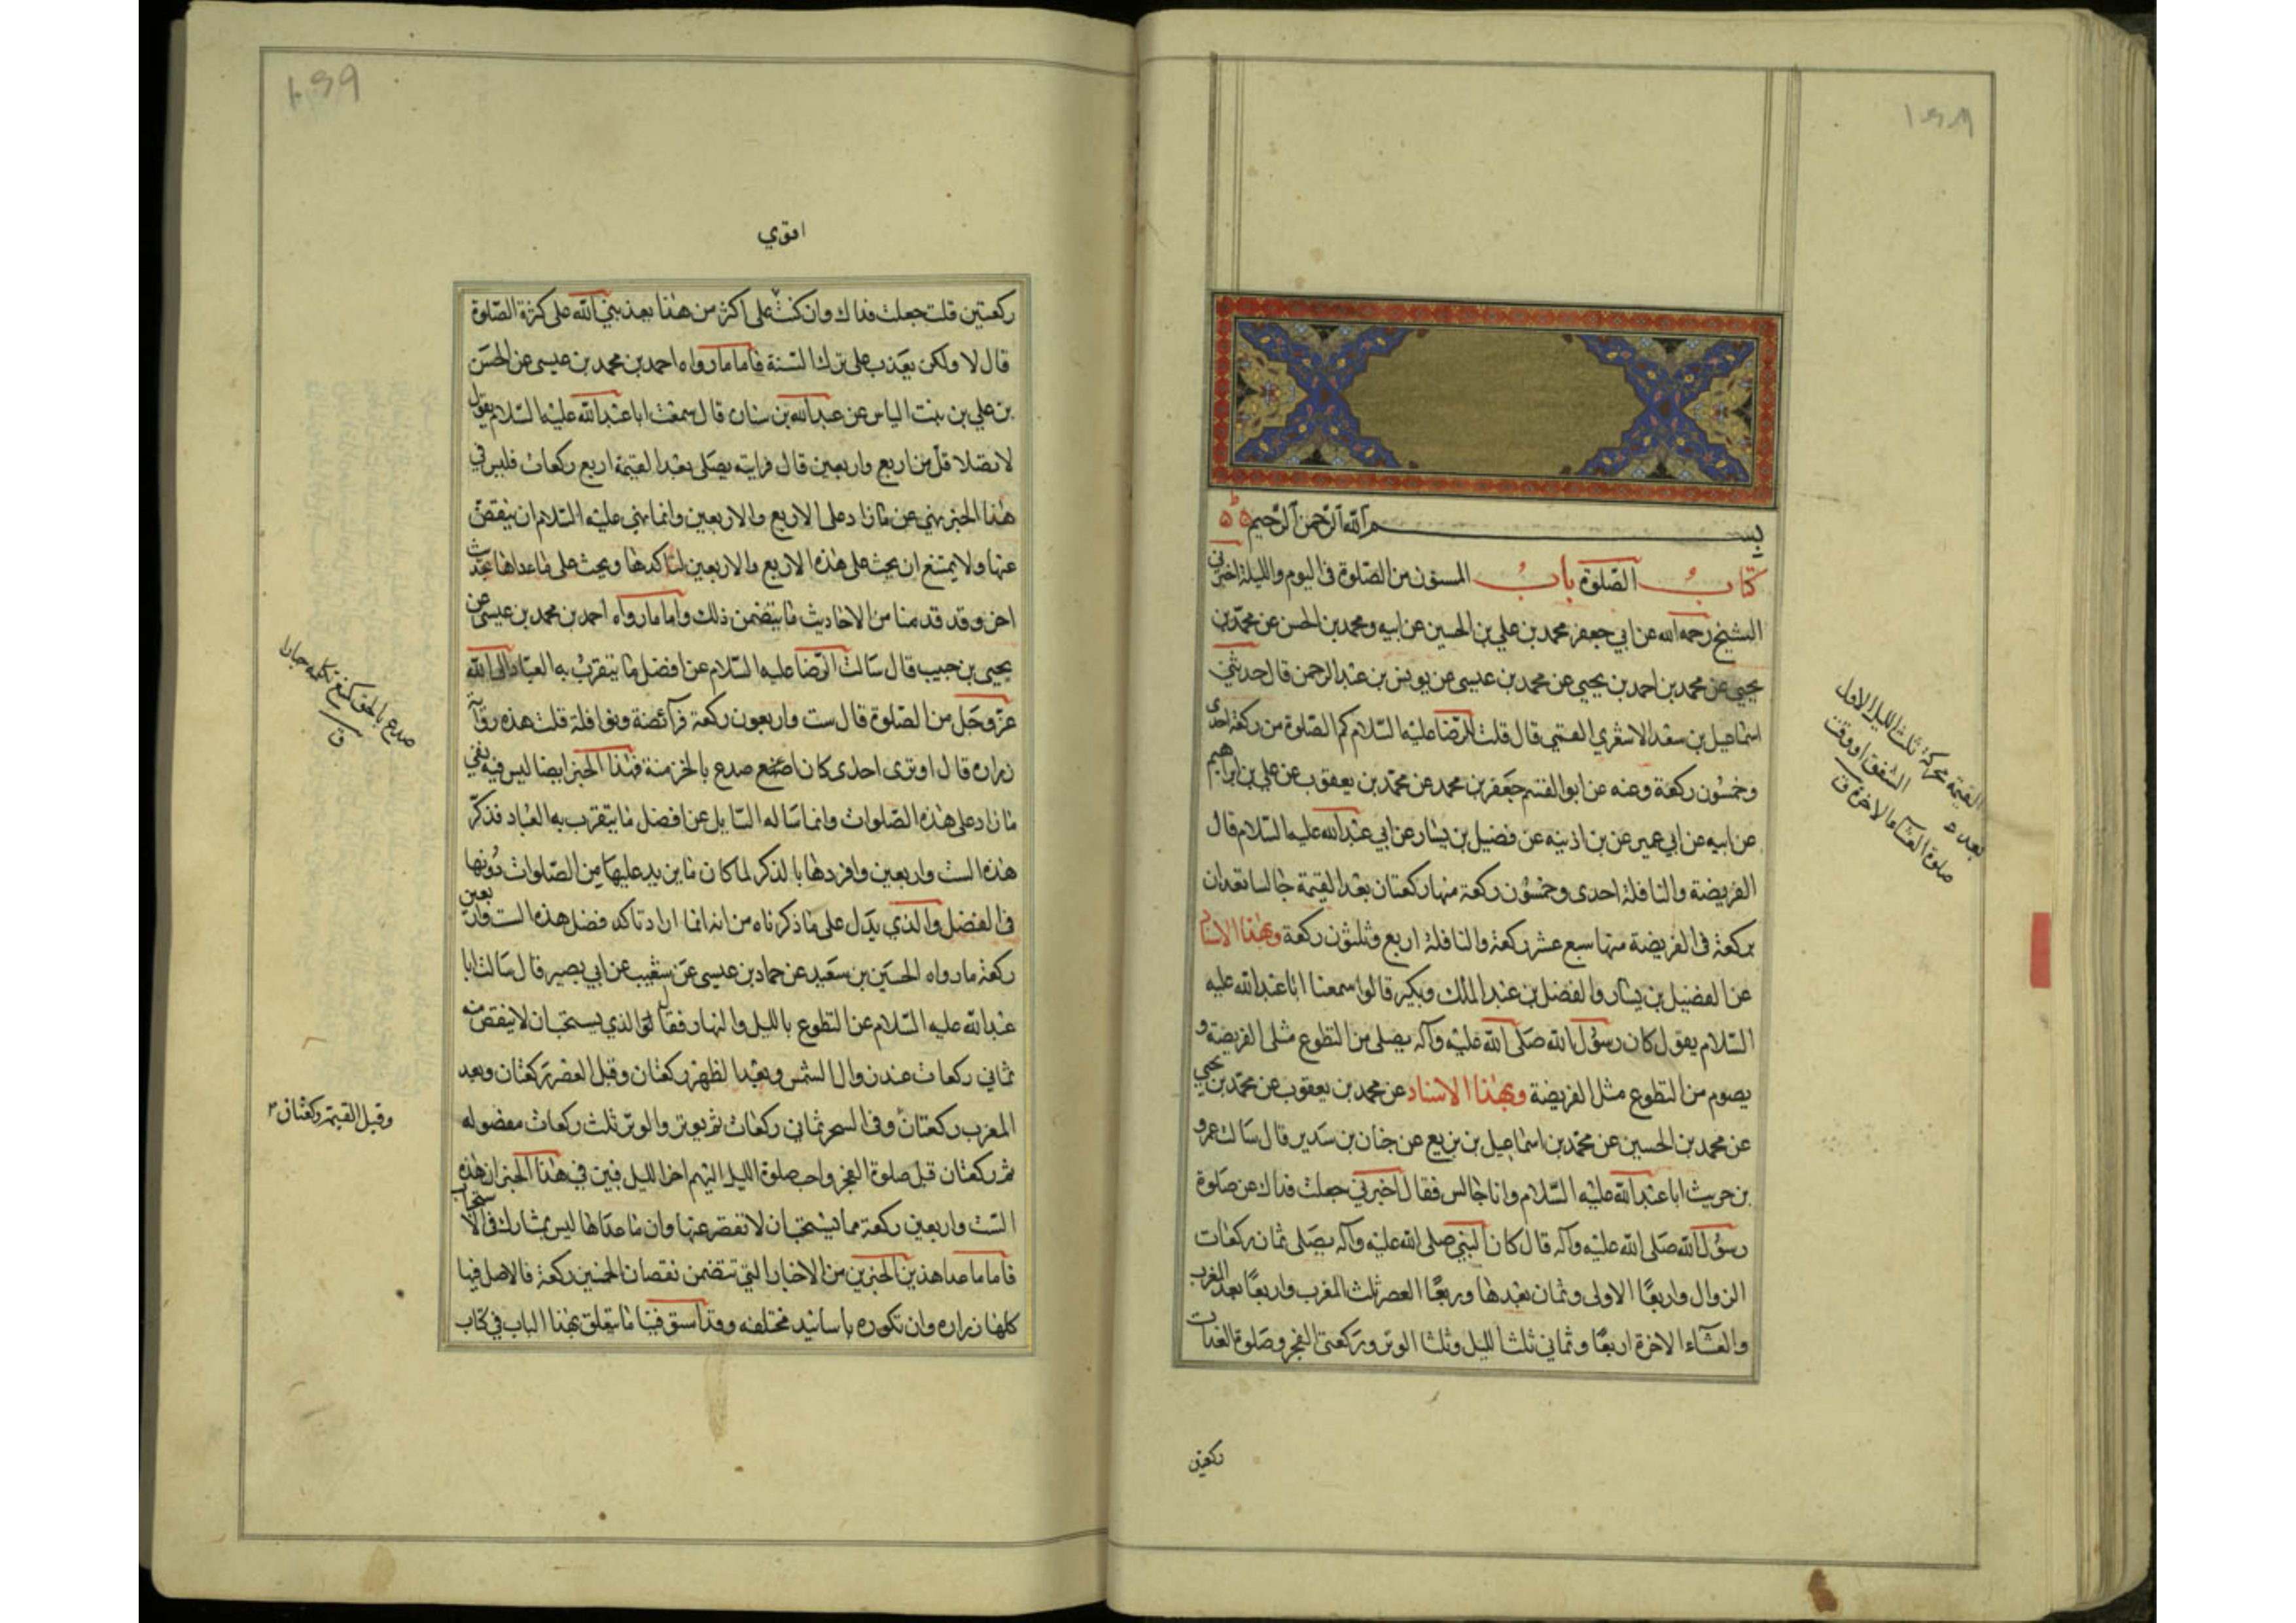 بسم الله الرحمن الرحيم
كتاب الصلوة باب المسنون من الصلوة في اليوم والليلة اخبرني
الشيخ رحمه الله عن ابي جعفر محمد بن علي بن الحسين عن ابيه ومحمد بن الحسن عن محمد بن
يحيى عن محمد بن احمد بن يحيى عن محمد بن عيسى عن يونس بن عبد الرحمن قال حدثني
اسماعيل بن سعد الاشعري القمي قال قلت للرضا عليه السلام كم الصلوة من ركعة احدى
وخمسون ركعة وعنه عن ابو القسم جعفر بن محمد عن محمد بن يعقوب عن علي بن ابراهيم
عن ابيه عن ابي عمير عن بن اذينه عن فضيل بن يسار عن ابي عبد الله عليه السلام قال
الفريضة والنافلة احدى وخمسون ركعة منها ركعتان بعد العتمة جالسا تعدان
بركعة في الفريضة منها سبع عشر ركعة والنافلة اربع وثلثون ركعة وبهذا الاسناد
عن الفضيل بن يسار والفضل بن عبد الملك وبكير قالوا سمعنا ابا عبد الله عليه
السلام يقول كان رسول الله صلى الله عليه وآله يصلي من التطوع مثلي الفريضة و
يصوم من التطوع مثل الفريضة وبهذا الاسناد عن محمد بن يعقوب عن محمد بن يحيى
عن محمد بن الحسين عن محمد بن اسماعيل بن بزيع عن حنان بن سدير قال سالت عمرو
بن حريث ابا عبد الله عليه السلام وانا جالس فقال اخبرني جعلت فداك عن صلوة
رسول الله صلى الله عليه وآله قال كان النبي صلى الله عليه وآله يصلى ثمان ركعات
الزوال واربعًا الاولى وثمان بعدها وربعًا العصر ثلث المغرب واربعًا بعد المغرب
والعشاء الاخرة اربعًا وثماني ثلثا لليل وثلثا الوتر وركعتى الفجر وصلوة الغداة
ركعتين
العتمة محركة ثلث الليل الاول
بعد الشفق او وقت
صلوة العشاء الاخرة ق
ركعتين قلت جعلت فداك وان كنت على اكثر من هذا يعذبني الله على كثرة الصلوة
قال لا ولكن يعذب على ترك السنة فاما ما رواه احمد بن محمد بن عيسى عن الحسن
بن علي بن بنت الياس عن عبد الله بن سنان قال سمعت ابا عبد الله عليه السلام يقول
لا تصل اقل من اربع واربعين قال فرايته يصلي بعد العتمة اربع ركعات فليس في
هذا الخبر نهي عن ما زاد على الاربع والاربعين وانما نهي عليه السلام ان ينقص
عنها ولا يمتنع ان يحث على هذه الاربع والاربعين لتاكدها ويحث على ما عداها بحديث
اخر وقد قدمنا من الاحاديث ما يتضمن ذلك واما ما رواه احمد بن محمد بن عيسى عن
يحيى بن حبيب قال سالت الرضا عليه السلام عن افضل ما يتقرب به العباد الى الله
عز وجل من الصلوة قال ست واربعون ركعة فرائضه ونوافله قلت هذه رواية
زراره قال او ترى احدى كان اصنع صدع بالحق منه فهذا الخبر ايضا ليس فيه نفي
ما زاد على هذه الصلوات وانما ساله السايل عن افضل ما يتقرب به العباد فذكر
هذه الست واربعين وافردها بالذكر لما كان ما يزيد عليها من الصلوات دونها
في الفضل والذي يدل على ما ذكرناه من انه انما اراد تاكد فضل هذه الست واربعين
ركعة ما رواه الحسين بن سعيد عن حماد بن عيسى عن شعيب عن ابي بصير قال سالت ابا
عبد الله عليه السلام عن التطوع بالليل والنهار فقال الذي يستحب ان لا ينقص منه
ثماني ركعات عند زوال الشمس وبعد الظهر ركعتان وقبل العصر ركعتان وبعد
المغرب ركعتان وفي السحر ثماني ركعات ثم يوتر والوتر ثلث ركعات مفصوله
ثم ركعتان قبل صلوة الفجر واحب صلوة الليل اليهم اخر الليل فبين في هذا الخبر ان هذه
الست واربعين ركعة مما يستحب ان لا تقصر عنها وان ما عداها ليس بمشارك في الاستحباب
فاما ما عدا هذين الخبرين من الاخبار التي تتضمن نقصان الخمسين ركعة فالاصل فيها
كلها زراره وان تكرره باسانيد مختلفه وقد استوفينا ما يتعلق بهذا الباب في كتاب
صدع بالحق
وقبل العتمة ركعتان